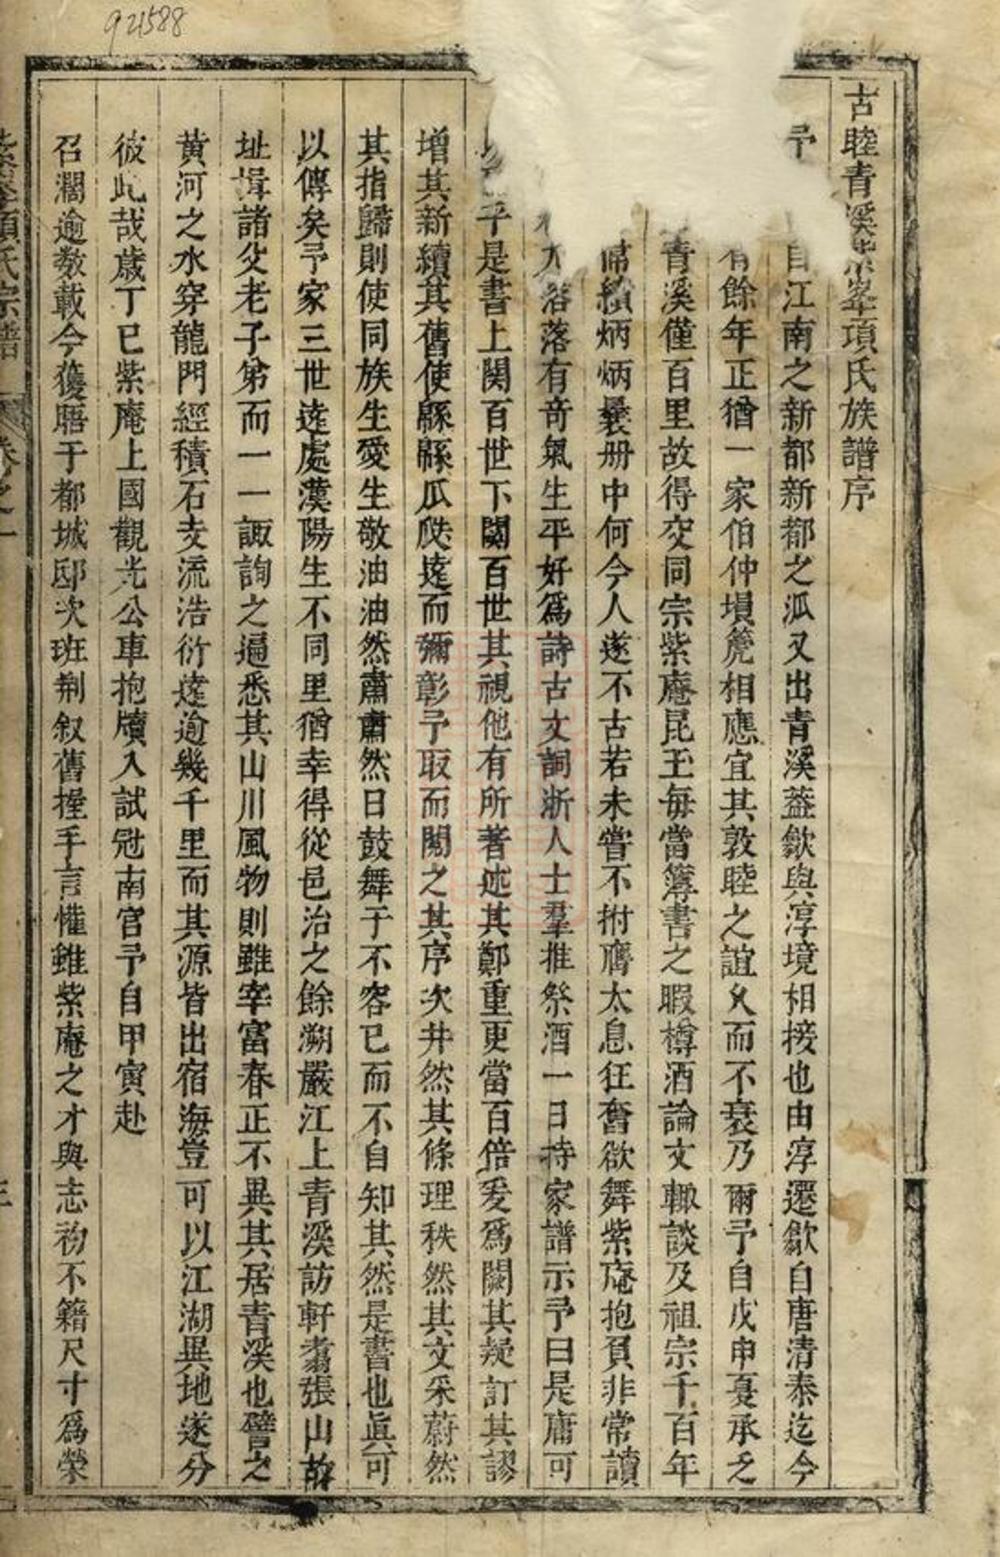 921588
古睦青溪紫峯項氏族譜序
予自江南之新都新都之派又出青溪葢歙與淳境相接也由淳遷歙自唐清泰迄今
有餘年正猶一家伯仲塤箎相應宜其敦睦之誼久而不衰乃爾予自戊申夏承乏
青溪僅百里故得交同宗紫庵昆玉每當簿書之暇樽酒論文輙談及祖宗千百年
偉績炳炳曩册中何今人遂不古若未嘗不拊膺太息狂奮欲舞紫庵抱負非常讀
落落有奇氣生平好爲詩古文詞浙人士羣推祭酒一日持家譜示予曰是庸可
乎是書上関百世下闢百世其視他有所著述其鄭重更當百倍爰爲闕其疑訂其謬
增其新續其舊使緜緜瓜瓞遠而彌彰予取而閱之其序次井然其條理秩然其文采蔚然
其指歸則使同族生愛生敬油油然肅肅然日鼓舞于不容已而不自知其然是書也眞可
以傳矣予家三世遠處漢陽生不同里猶幸得從邑治之餘溯嚴江上青溪訪軒翥張山故
址揖諸父老子弟而一一諏詢之遍悉其山川風物則雖宰富春正不異其居青溪也譬之
黄河之水穿龍門經積石支流浩衍遠逾幾千里而其源皆出宿海豈可以江湖異地遂分
彼此哉歲丁巳紫庵上國觀光公車抱牘入試冠南宫予自甲寅赴
召濶逾数載今獲晤于都城邸次班荆叙舊握手言懽雖紫庵之才與志初不籍尺寸爲榮
項氏宗譜 卷之一